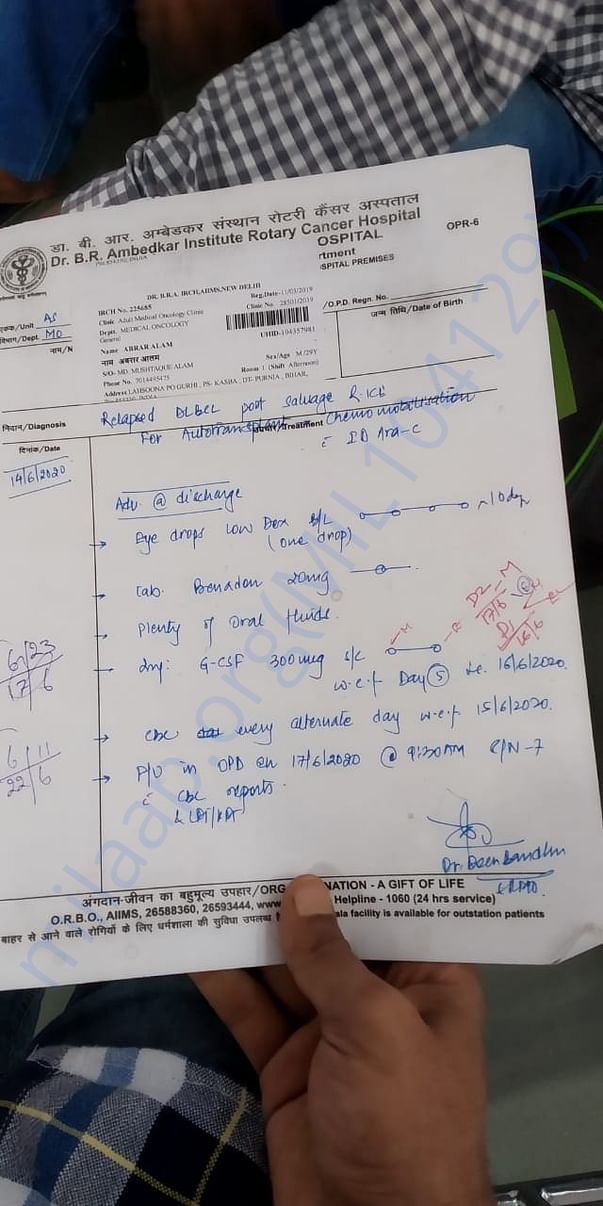 डा. बी. आर. अम्बेडकर संस्थान रोटरी कैंसर अस्पताल
Dr. B.R. Ambedkar Institute Rotary Cancer Hospital
OSPITAL
OPR-6
rtment
SPITAL PREMISES
DR. B.R.A. IRCH,AIIMS,NEW DELHI
IRCH No. 225685
Reg.Date-11/03/2019
Clinic Adult Medical Oncology Clinic
Clinic No.
Deptt. MEDICAL ONCOLOGY
General
/O.P.D. Regn. No.
एकक/Unit AS
विभाग/Dept. MO
नाम/N
Name ABRAR ALAM
UHID-104357981
जन्म तिथि/Date of Birth
नाम अबरार आलम
S/O- MD. MUSHTAQUE ALAM
Sex/Age M/29Y
Phone No. 7014495475
Room 1 (Shift Afternoon)
Address LAHSOONA PO GURHI , PS- KASBA , DT- PURNIA , BIHAR,
निदान/Diagnosis
Relapsed DLBCL post salvage R-ICE
For Autotransplant Chemomobilisation
उपचार/Treatment
c̄ ID Ara-C
दिनांक/Date
14/6/2020
Adv. @ discharge
→ Eye drops Low Dex B/L
(one drop)
→ Tab. Benadon 20mg
→ Plenty of oral fluids.
→ Inj: G-CSF 300mcg s/c
w.e.f Day 5 i.e. 16/6/2020.
D2 M
17/6
D1
16/6
6/23
17/6
→ CBC every alternate day w.e.f 15/6/2020.
6/11
22/6
→ F/U in OPD on 17/6/2020 @ 9:30AM R/N-7
c̄ CBC reports
& LFT/KFT
Dr. Deenbandhu
अंगदान-जीवन का बहुमूल्य उपहार/ORG NATION - A GIFT OF LIFE
O.R.B.O., AIIMS, 26588360, 26593444, www Helpline - 1060 (24 hrs service)
बाहर से आने वाले रोगियों के लिए धर्मशाला की सुविधा उपलब्ध ala facility is available for outstation patients
milaap.org(MIL1041129)